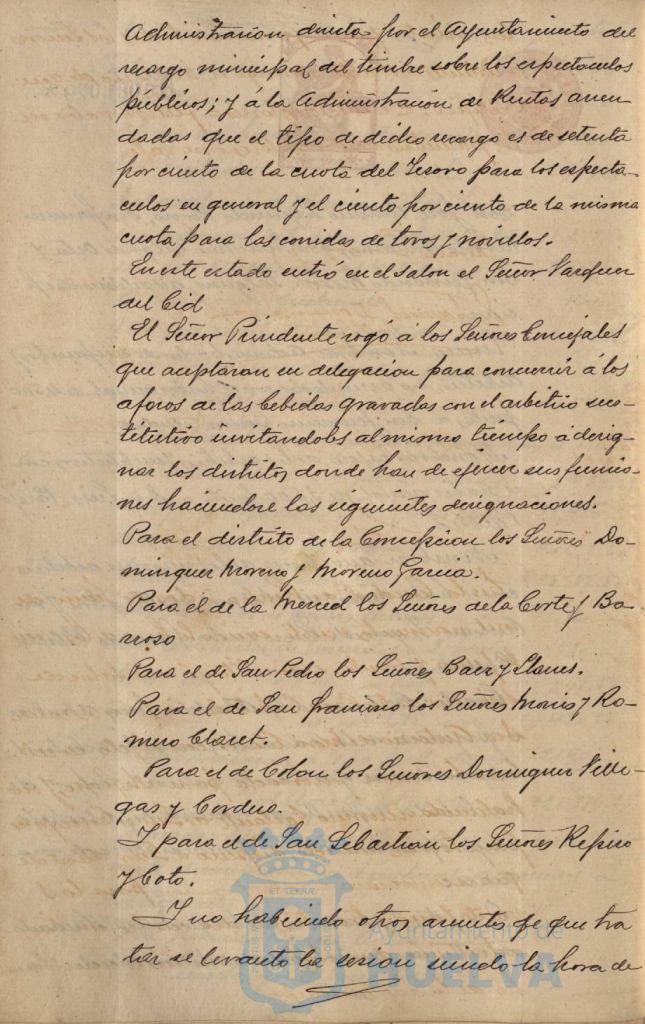 Administración directa por el Ayuntamiento del
recargo municipal del timbre sobre los espectaculos
públicos; y á la Administración de Rentas arren
dadas que el tipo de dicho recargo es de setenta
por ciento de la cuota del Tesoro para los especta-
culos en general y el ciento por ciento de la misma
cuota para las corridas de toros y novillos.
En este estado entró en el salon el Señor Vazquez
del Cid
El Señor Presidente rogó á los Señores Concejales
que aceptaran su delegacion para concurrir á los
aforos de las bebidas gravadas con el arbitrio sus-
titutivo invitandoles al mismo tiempo á desig-
nar los distritos donde han de ejercer sus funcio-
nes haciendose las siguientes designaciones.
Para el distrito de la Concepcion los Señores Do-
minguez Moreno y Moreno Garcia.
Para el de la Merced los Señores de la Corte y Ba-
rroso
Para el de San Pedro los Señores Baez y Llanes.
Para el de San Francisco los Señores Moris y Ro-
mero Claret.
Para el de Colon los Señores Dominguez Ville-
gas y Cordero.
Y para el de San Sebastian los Señores Repiso
y Coto.
Y no habiendo otros asuntos de que tra
tar se levanto la sesion siendo la hora de
ET TERRÆ
Ayuntamiento de
HUELVA